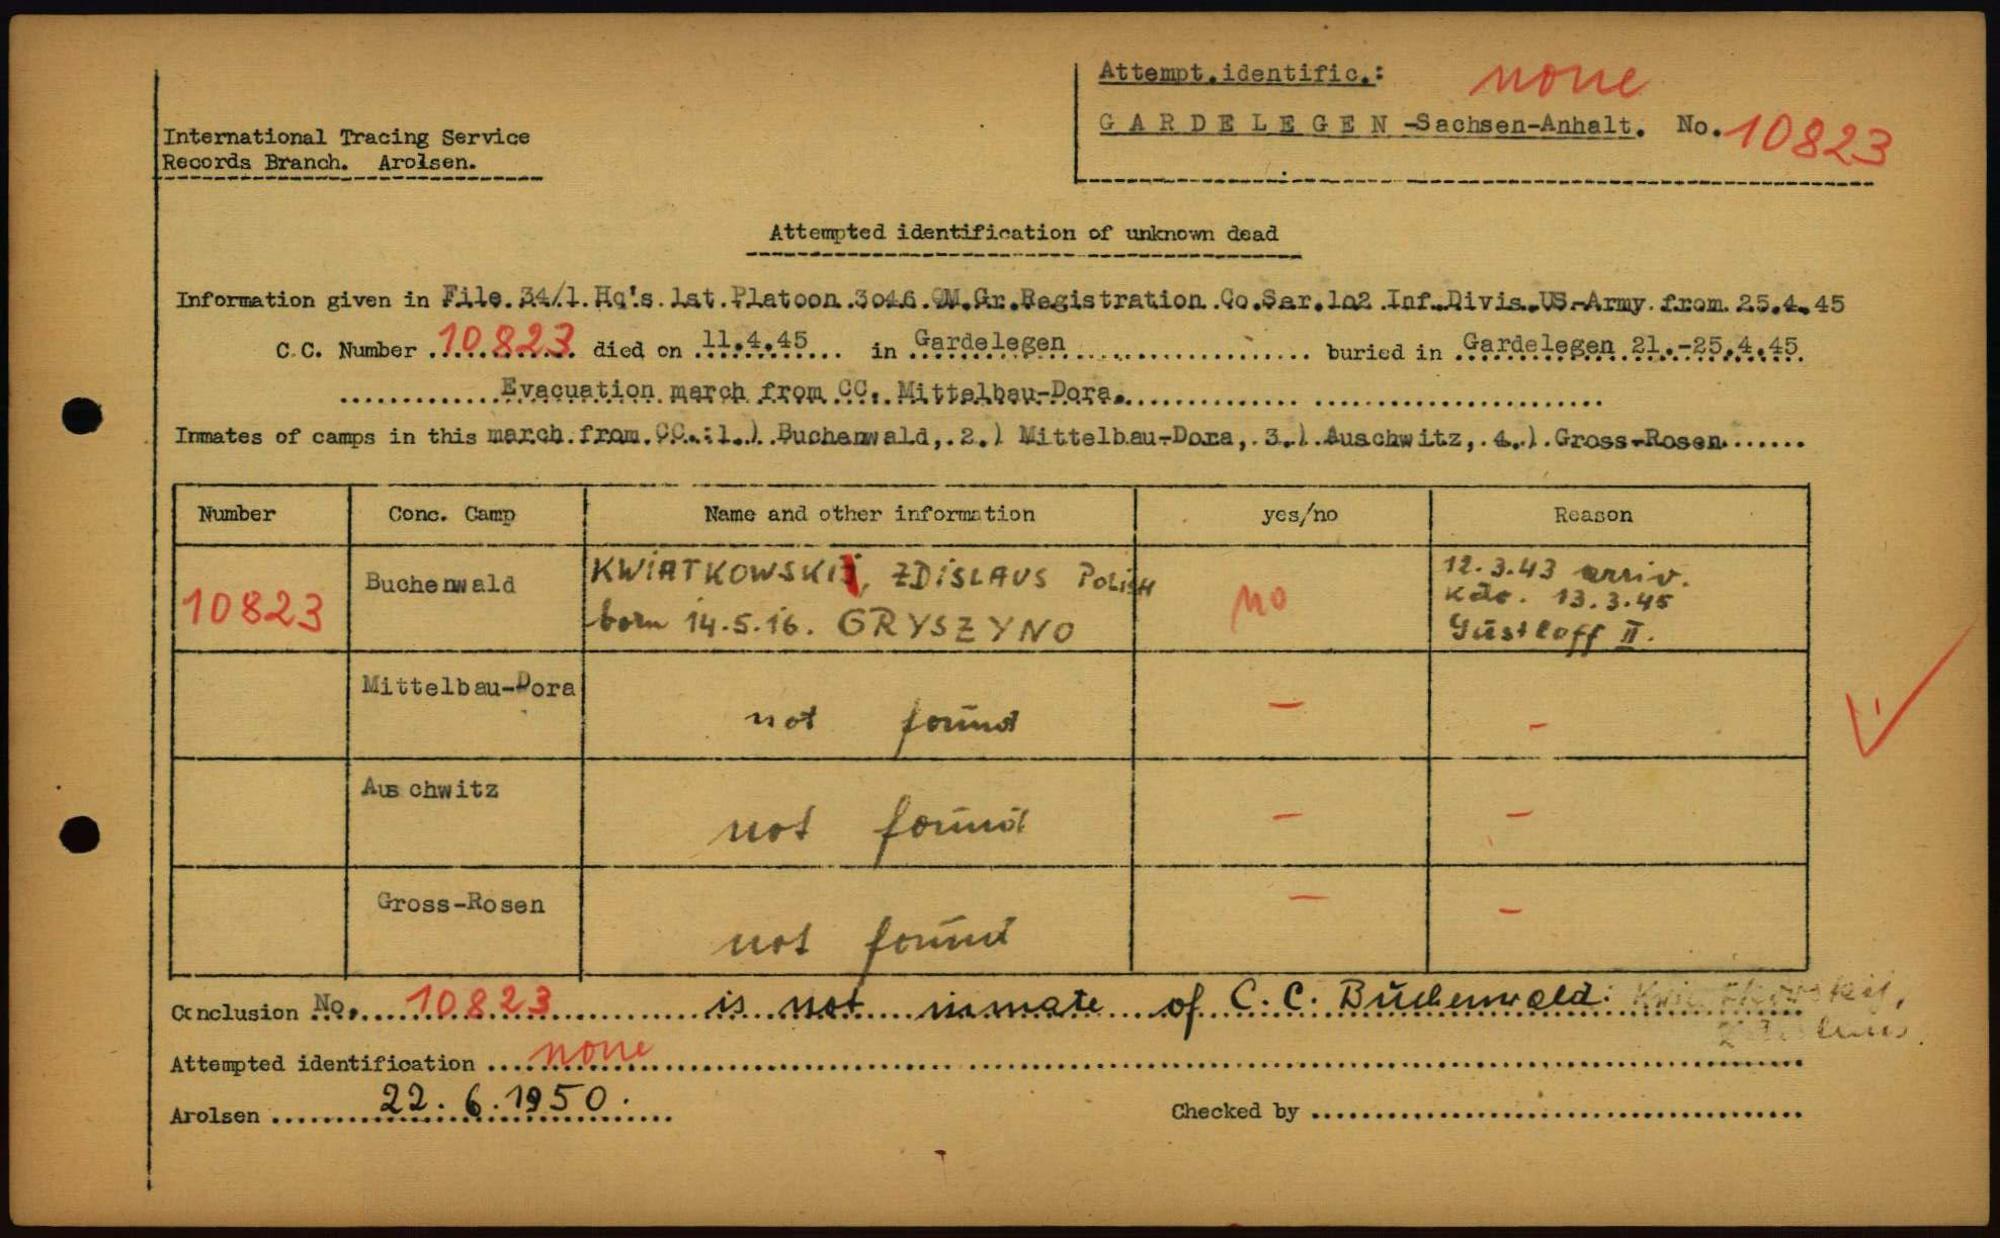 Attempt.identific.: none
GARDELEGEN-Sachsen-Anhalt. No. 10823
International Tracing Service
Records Branch. Arolsen.
Attempted identification of unknown dead
Information given in File.34/1.Hq's.1st.Platoon.3046.QM.Gr.Registration.Co.Ser.102.Inf.Divis.US-Army.from.25.4.45
C.C. Number 10823 died on 11.4.45 in Gardelegen buried in Gardelegen 21.-25.4.45.
Evacuation march from CC. Mittelbau-Dora.
Inmates of camps in this march.from.CC.:1.).Buchenwald,.2.) Mittelbau-Dora,.3.).Auschwitz,.4.).Gross-Rosen
Number Conc. Camp Name and other information yes/no Reason
10823 Buchenwald KWIATKOWSKI, ZDISLAUS Polish no 12.3.43 arriv.
born 14.5.16. GRYSZYNO Kdo. 13.3.45
Gustloff II.
Mittelbau-Dora not found - -
Auschwitz not found - -
Gross-Rosen not found - -
Conclusion No. 10823 is not inmate of C.C. Buchenwald:
Attempted identification none
Arolsen 22.6.1950. Checked by